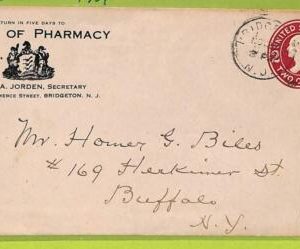 RETURN IN FIVE DAYS TO
OF PHARMACY
A. JORDEN, SECRETARY
MERCE STREET, BRIDGETON, N. J.
N. J.
UNITED
TWO
Mr. Homer G. Biles
# 169 Herkimer St.
Buffalo
N. Y.